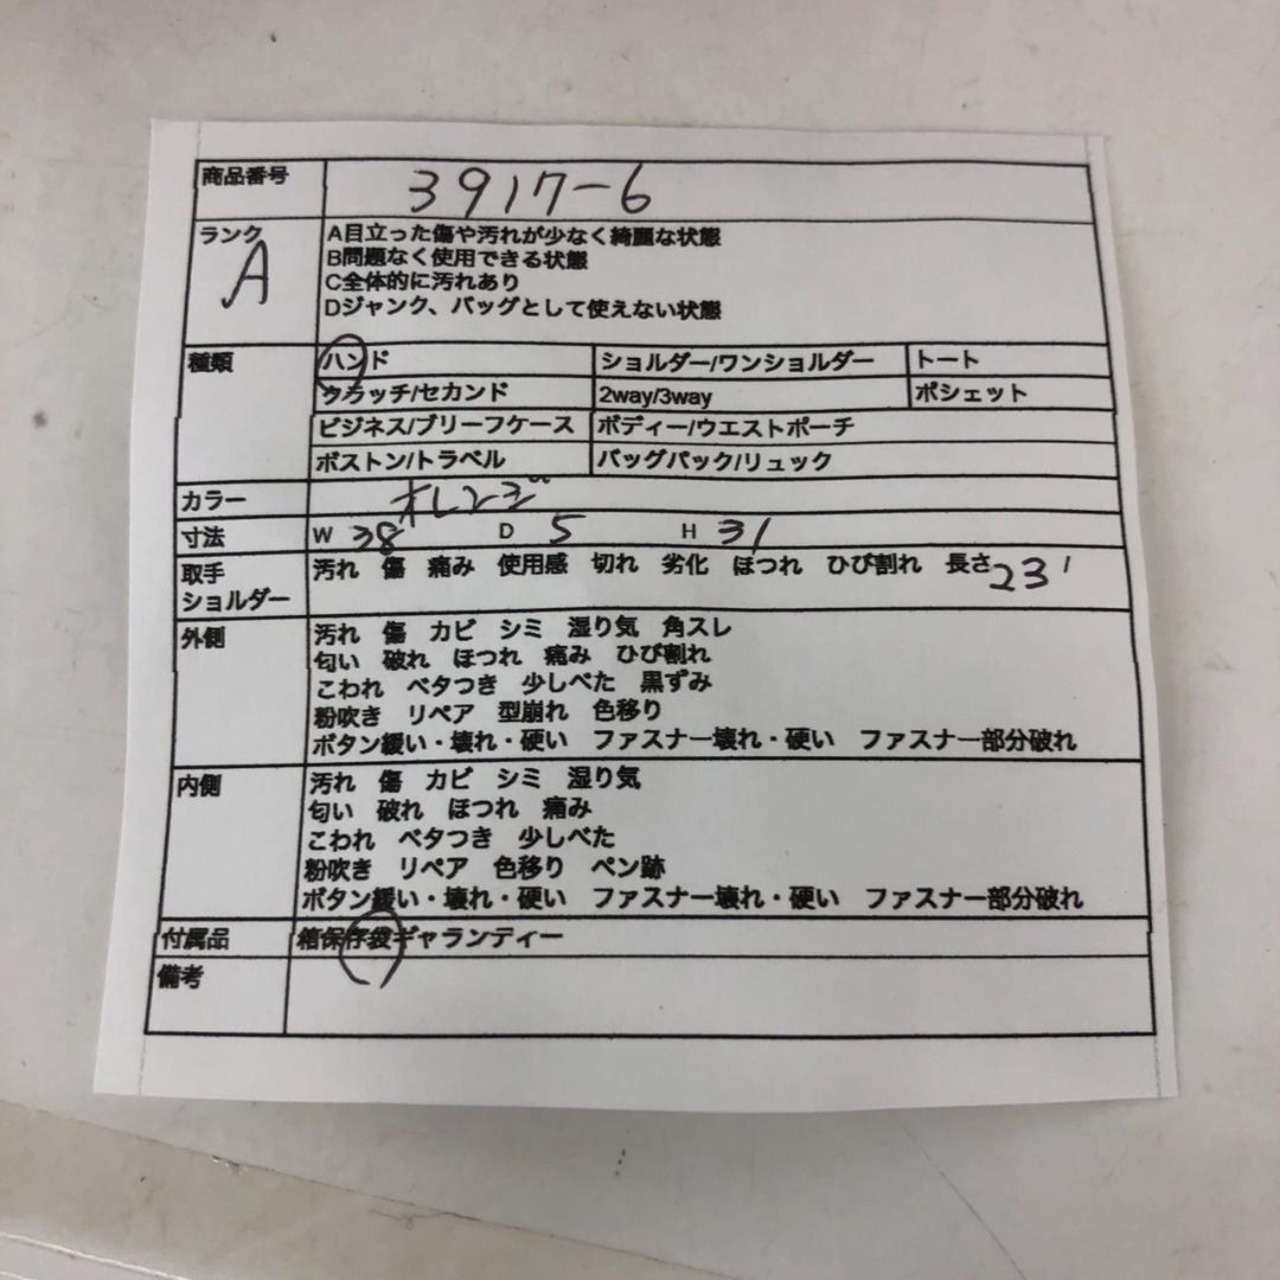 商品番号 3917-6
ランク A
A目立った傷や汚れが少なく綺麗な状態
B問題なく使用できる状態
C全体的に汚れあり
Dジャンク、バッグとして使えない状態
種類 ハンド ショルダー/ワンショルダー トート
クラッチ/セカンド 2way/3way ポシェット
ビジネス/ブリーフケース ボディー/ウエストポーチ
ボストン/トラベル バッグパック/リュック
カラー オレンジ
寸法 W 38 D 5 H 31
取手 汚れ 傷 痛み 使用感 切れ 劣化 ほつれ ひび割れ 長さ 23
ショルダー
外側 汚れ 傷 カビ シミ 湿り気 角スレ
匂い 破れ ほつれ 痛み ひび割れ
こわれ ベタつき 少しべた 黒ずみ
粉吹き リペア 型崩れ 色移り
ボタン緩い・壊れ・硬い ファスナー壊れ・硬い ファスナー部分破れ
内側 汚れ 傷 カビ シミ 湿り気
匂い 破れ ほつれ 痛み
こわれ ベタつき 少しべた
粉吹き リペア 色移り ペン跡
ボタン緩い・壊れ・硬い ファスナー壊れ・硬い ファスナー部分破れ
付属品 箱保存袋ギャランティー
備考